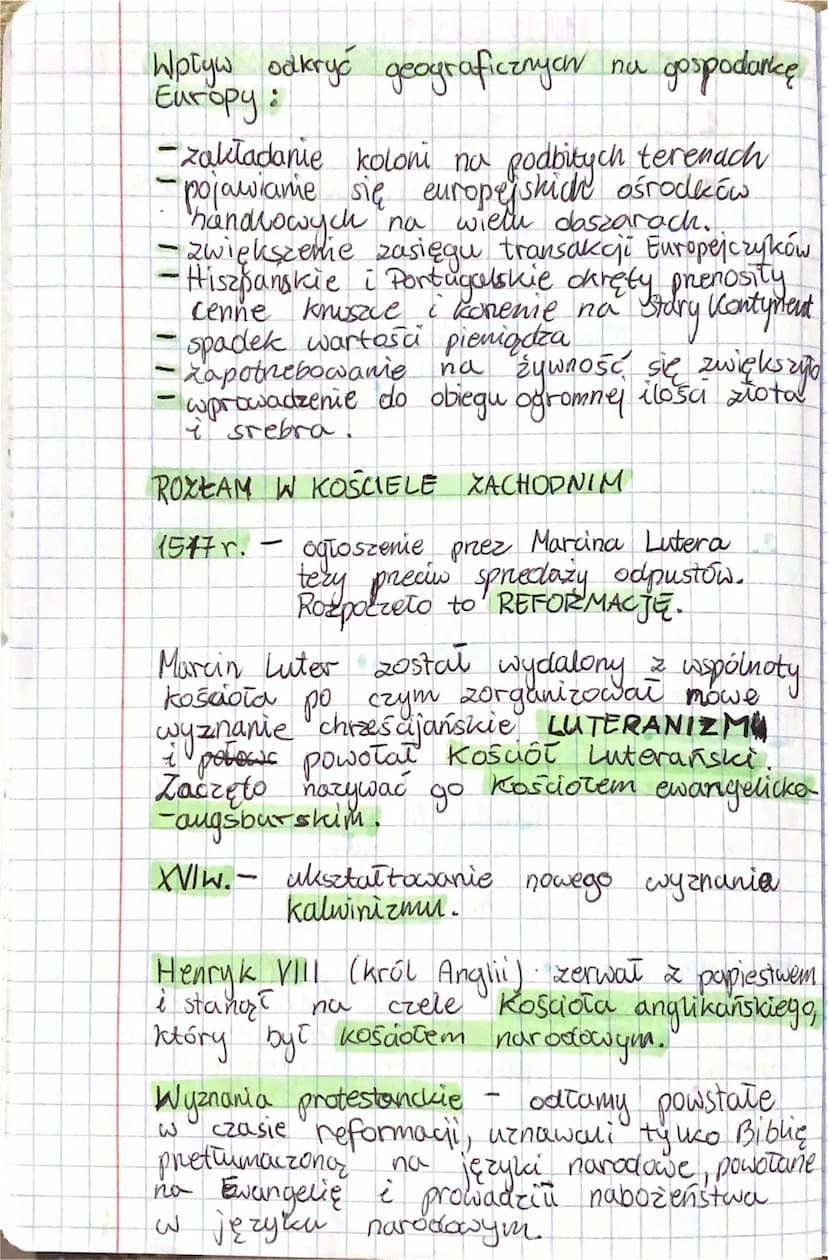 Wpływ odkryć geograficznych na gospodarkę
Europy:
- zakładanie koloni na podbitych terenach
- pojawianie się europejskich ośrodków
handlowych na wielu obszarach.
- zwiększenie zasięgu transakcji Europejczyków
- Hiszpańskie i Portugalskie okręty przenosiły
cenne kruszce i korzenie na Stary Kontynent
- spadek wartości pieniądza
- zapotrzebowanie na żywność się zwiększyło
- wprowadzenie do obiegu ogromnej ilości złota
i srebra.
ROZŁAM W KOŚCIELE ZACHODNIM
1517 r. - ogłoszenie przez Marcina Lutera
tezy przeciw sprzedaży odpustów.
Rozpoczęło to REFORMACJĘ.
Marcin Luter został wydalony z wspólnoty
kościoła po czym zorganizował nowe
wyznanie chrześcijańskie LUTERANIZM
i powołał Kościół Luterański.
Zaczęto nazywać go Kościołem ewangelicko-
-augsburskim.
XVI w. - ukształtowanie nowego wyznania
kalwinizmu.
Henryk VIII (król Anglii) zerwał z papiestwem
i stanął na czele Kościoła anglikańskiego,
który był kościołem narodowym.
Wyznania protestanckie - odłamy powstałe
w czasie reformacji, uznawali tylko Biblię
przetłumaczoną na języki narodowe, powołane
na Ewangelię i prowadzili nabożeństwa
w języku narodowym.